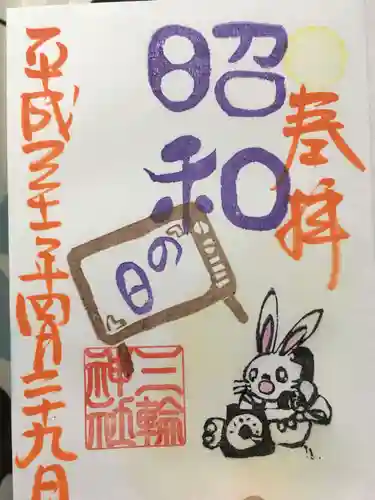 奉拝
昭和
の
日
三輪
神社
平成三十一年四月二十九日